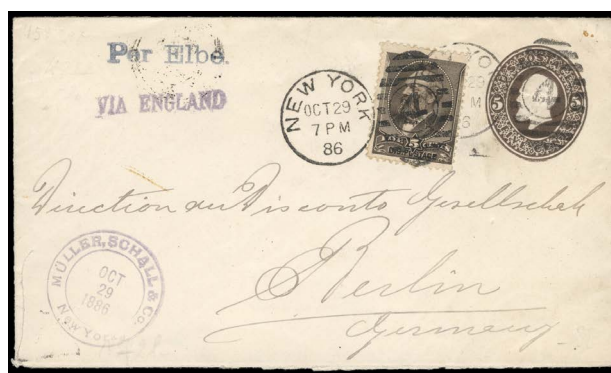 Per Elbe.
VIA ENGLAND
NEW YORK
OCT 29
7 PM
86
5
5
Direction der Disconto Gesellschaft
Berlin
Germany
MÜLLER, SCHALL & CO.
OCT
29
1886
NEW YORK